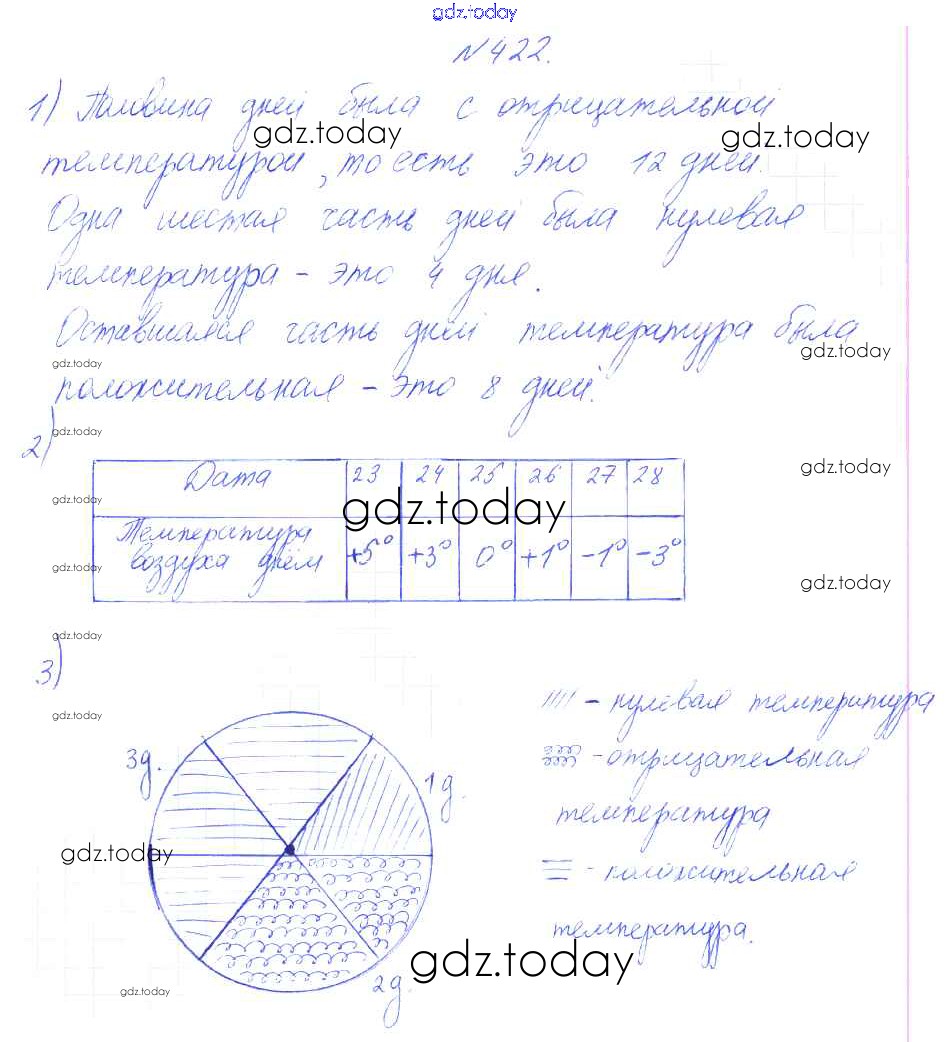 gdz.today
№422.
1) Половина дней была с отрицательной
gdz.today gdz.today
температурой, то есть это 12 дней.
Одна шестая часть дней была нулевая
температура - это 4 дня.
Оставшаяся часть дней температура была
gdz.today gdz.today
положительная - это 8 дней.
2) gdz.today
gdz.today
Дата 23 24 25 26 27 28
gdz.today gdz.today
Температура
воздуха днём +5° +3° 0° +1° -1° -3°
gdz.today gdz.today
gdz.today
3)
gdz.today
- нулевая температура
3д. - отрицательная
1д.
температура
gdz.today
- положительная
температура.
gdz.today
2д.
gdz.today